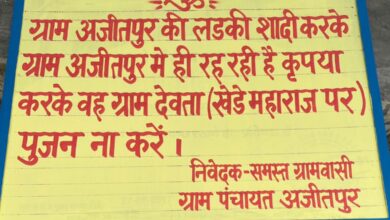 ॐ
ग्राम अजीतपुर की लडकी शादी करके
ग्राम अजीतपुर मे ही रह रही है कृपया
करके वह ग्राम देवता (खेडे महाराज पर)
पुजन ना करें ।
निवेदक-समस्त ग्रामवासी
ग्राम पंचायत अजीतपुर